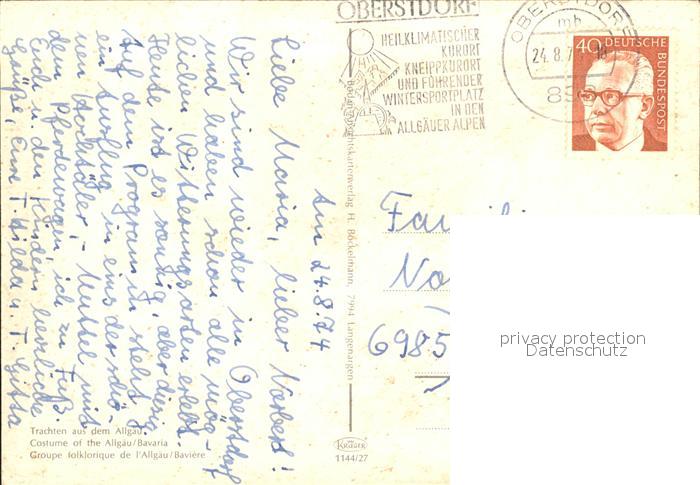 OBERSTDORF
HEILKLIMATISCHER
KURORT
KNEIPPKURORT
UND FÜHRENDER
WINTERSPORTPLATZ
IN DEN
ALLGÄUER ALPEN
OBERSTDORF
mb
24.8.7
89
40 DEUTSCHE
BUNDESPOST
Am 24.8.74
Liebe Maria, lieber Norbert!
Wir sind wieder in Oberstdorf
und haben schon alle mög-
lichen Witterungsarten erlebt.
Heute ist es sonnig, aber diesig.
Auf dem Programm steht
ein Ausflug in eins der schö-
nen Hochtäler, - Muttel mit
dem Pferdewagen, ich zu Fuß.
Euch u. den Kindern herzliche
Grüße, Eure T. Hilda u. T. Gitta
Fa
No
6985
privacy protection
Datenschutz
Ansichtskartenverlag H. Böckelmann, 7994 Langenargen
Trachten aus dem Allgäu
Costume of the Allgäu/Bavaria
Groupe folklorique de l'Allgäu/Bavière
KRÜGER
1144/27